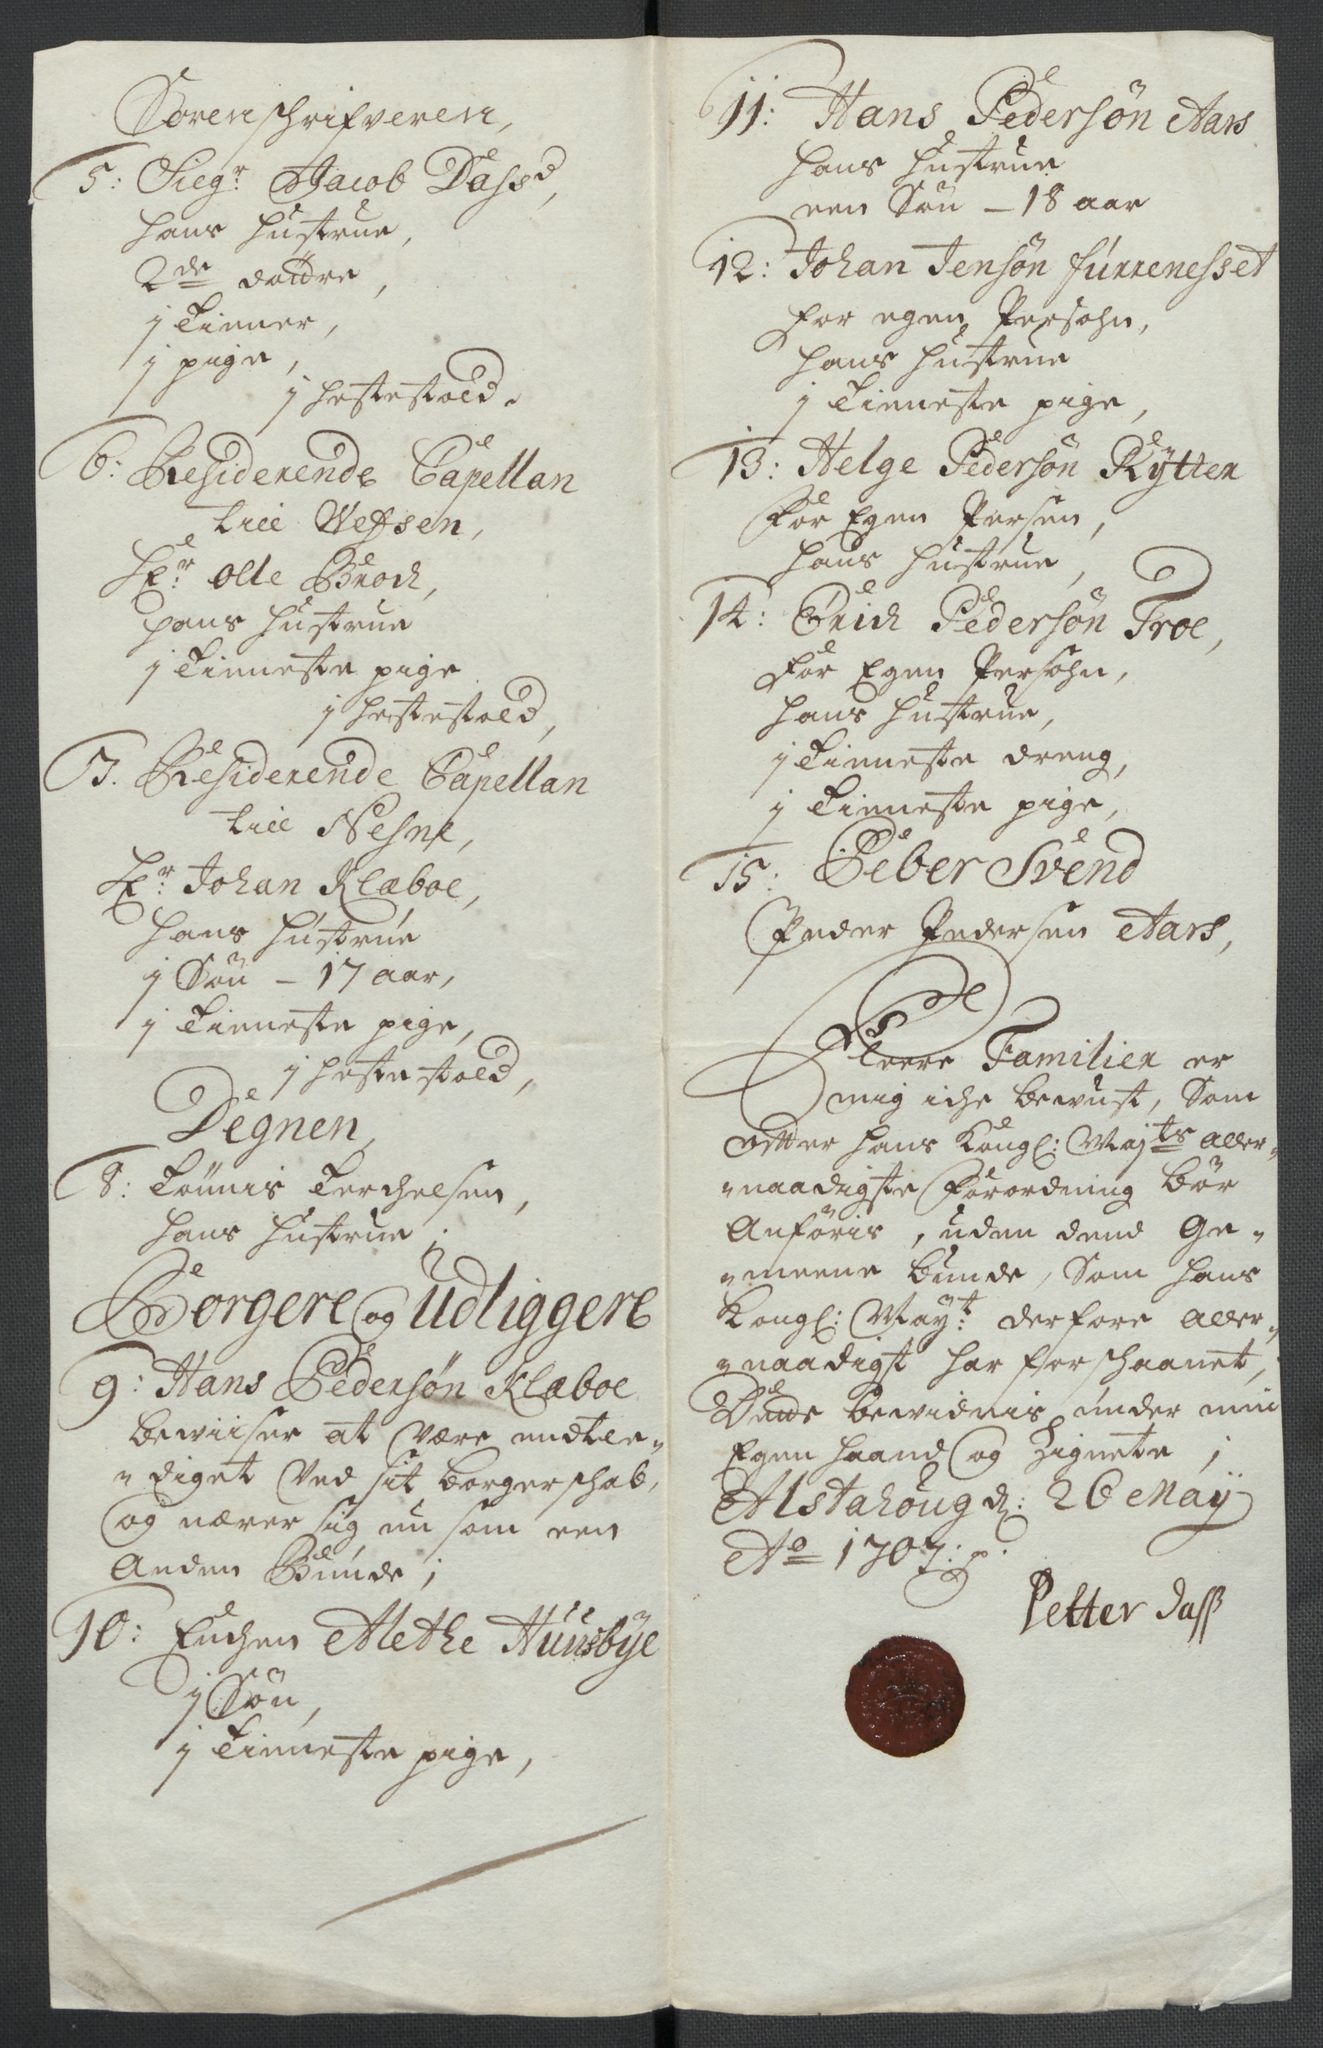 Sorenschrifveren,
5: Siegr. Jacob Dassd,
hans Hustrue,
2de døttre,
j tiener,
j pige,
j hestestoed.
6: Residerende Capellan
till Wefsen,
Hr: Olle Brock,
hans Hustrue
j tieneste pige
j hestestoed,
7. Residerende Capellan
till Nesne,
Hr: Johan Klæboe,
hans Hustrue
j Søn – 17 aar,
j tieneste pige,
j hestestoed,
Degnen,
8: Tønnis Terchelsen,
hans Hustrue.
Borgere og Udliggere
9: Hans Pedersøn Klæboe
beviiser at være endtle-
-diget ved sit borgerschab,
og nærer sig nu som een
Anden Bunde;
10: Enchen Alethe Hunsbye
j Søn,
j tieneste pige,
11: Hans Pedersøn Aars
hans Hustrue
een Søn – 18 aar
12: Johan Jensøn furrenesset
for egen Persohn,
hans Hustrue
j tieneste pige,
13: Helge Pedersøn Rytter
for Egen Persen,
hans Hustrue,
14: Erich Pedersøn Troe,
for Egen Persohn,
hans Hustrue,
j tieneste dreng,
j tieneste pige,
15: Peber Svend
Peder Pedersen Aars,
Fleere Familier er
mig iche bewust, Som
efter hans Kongl: Majts aller-
-naadigste Forordning bør
Anføris, uden dend Ge-
-meene bunde, Som hans
Kongl: Mayt: derfore aller-
-naadigst har forschaanet,
Dette bevidnis under min
Egen haand og Zignete;
Alstahoug d: 26 May
Ao 1707:
Petter Dass